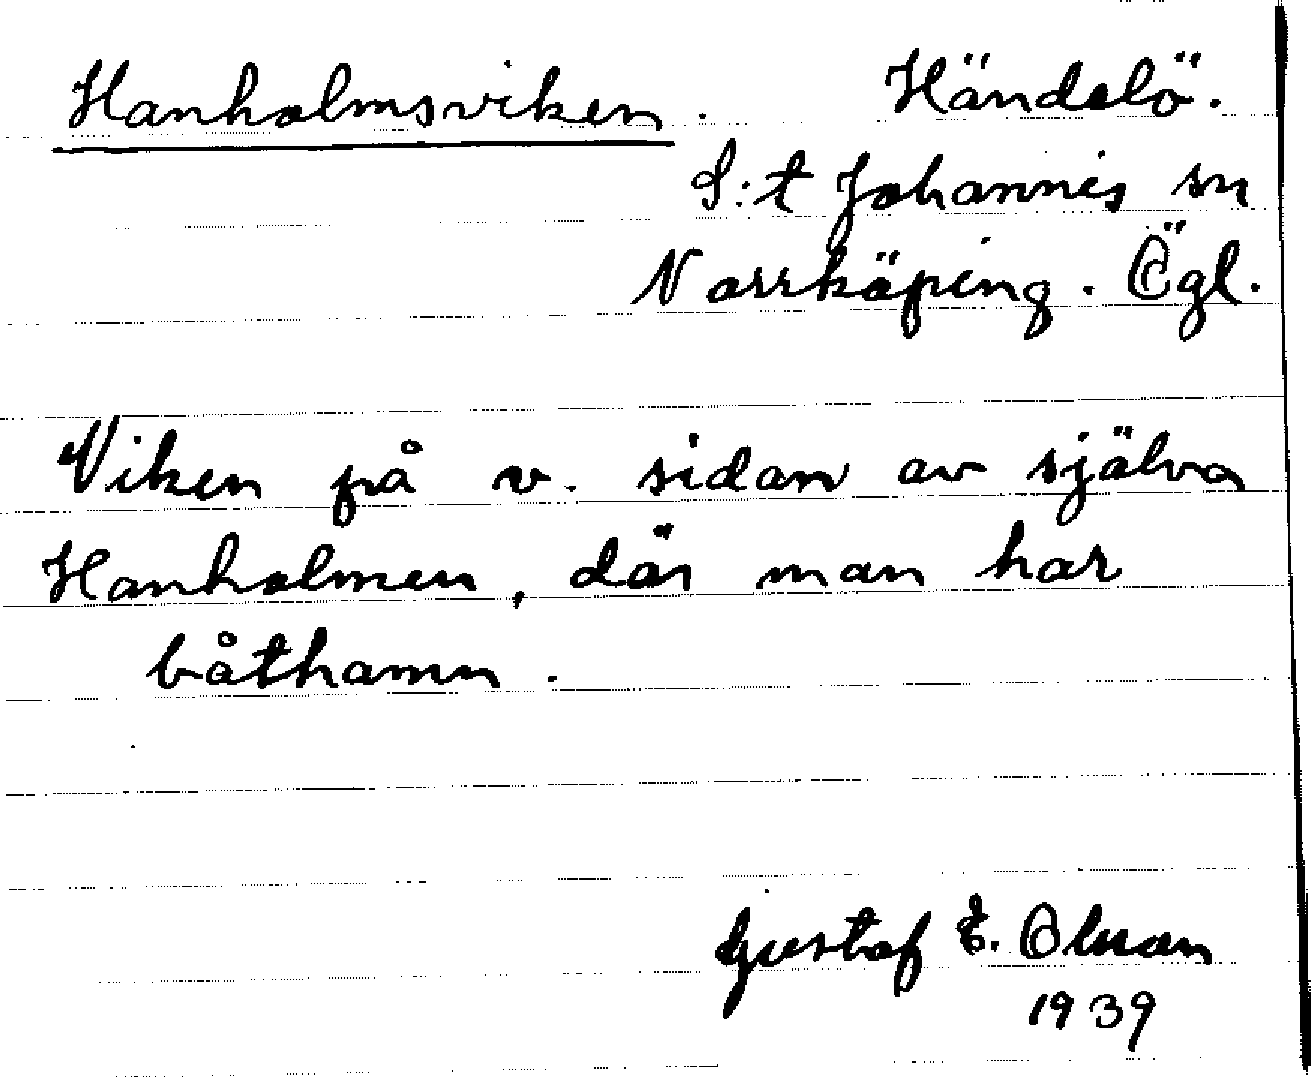 Hanholmsviken. Händelö.
S:t Johannis sn
Norrköping. Ögl.
Viken på v. sidan av själva
Hanholmen, där man har
båthamn.
Gustaf E. Olsson
1939